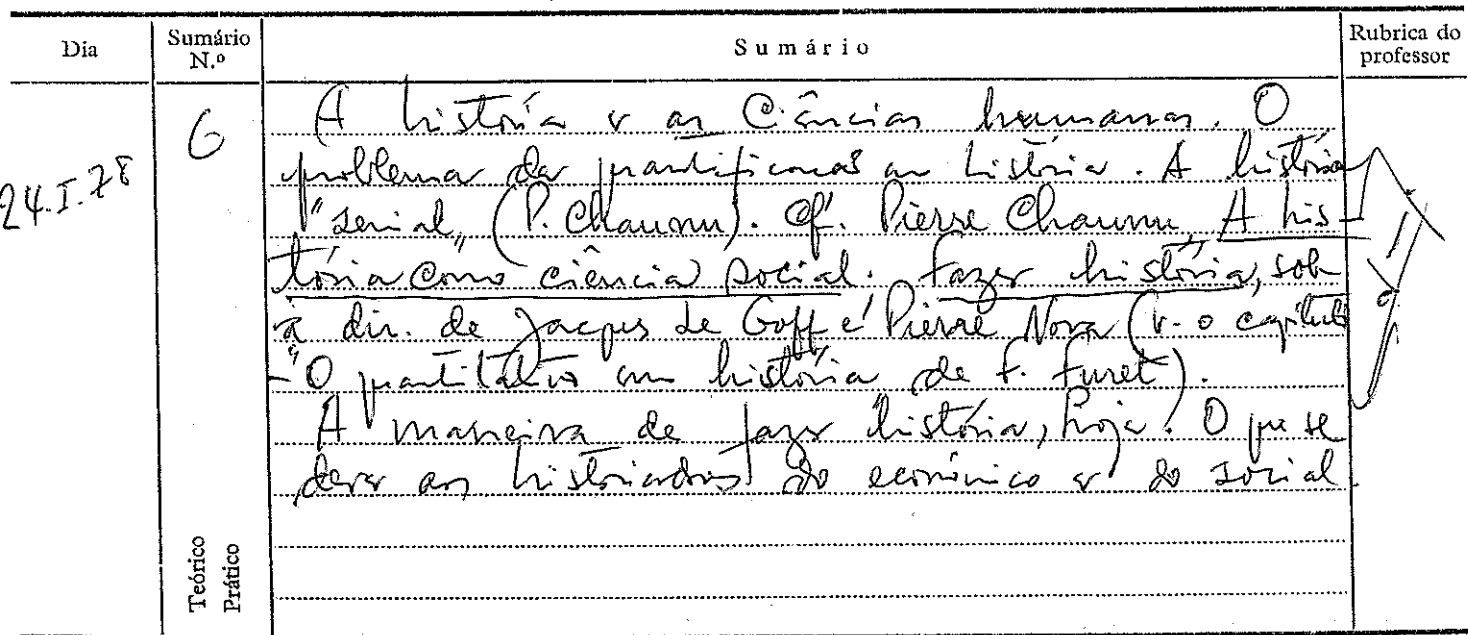 Dia
Sumário N.º
Sumário
Rubrica do professor
24.I.78
6
A história e as Ciências humanas. O
problema da quantificação na história. A história
"serial" (P. Chaunu). Cf. Pierre Chaunu, A his-
tória como ciência social. Fazer história, sob
a dir. de Jacques Le Goff e Pierre Nora (v. o capítulo
"O quantitativo em história de F. Furet).
A maneira de fazer história, hoje. O que se
deve aos historiadores do económico e do social
Teórico
Prático